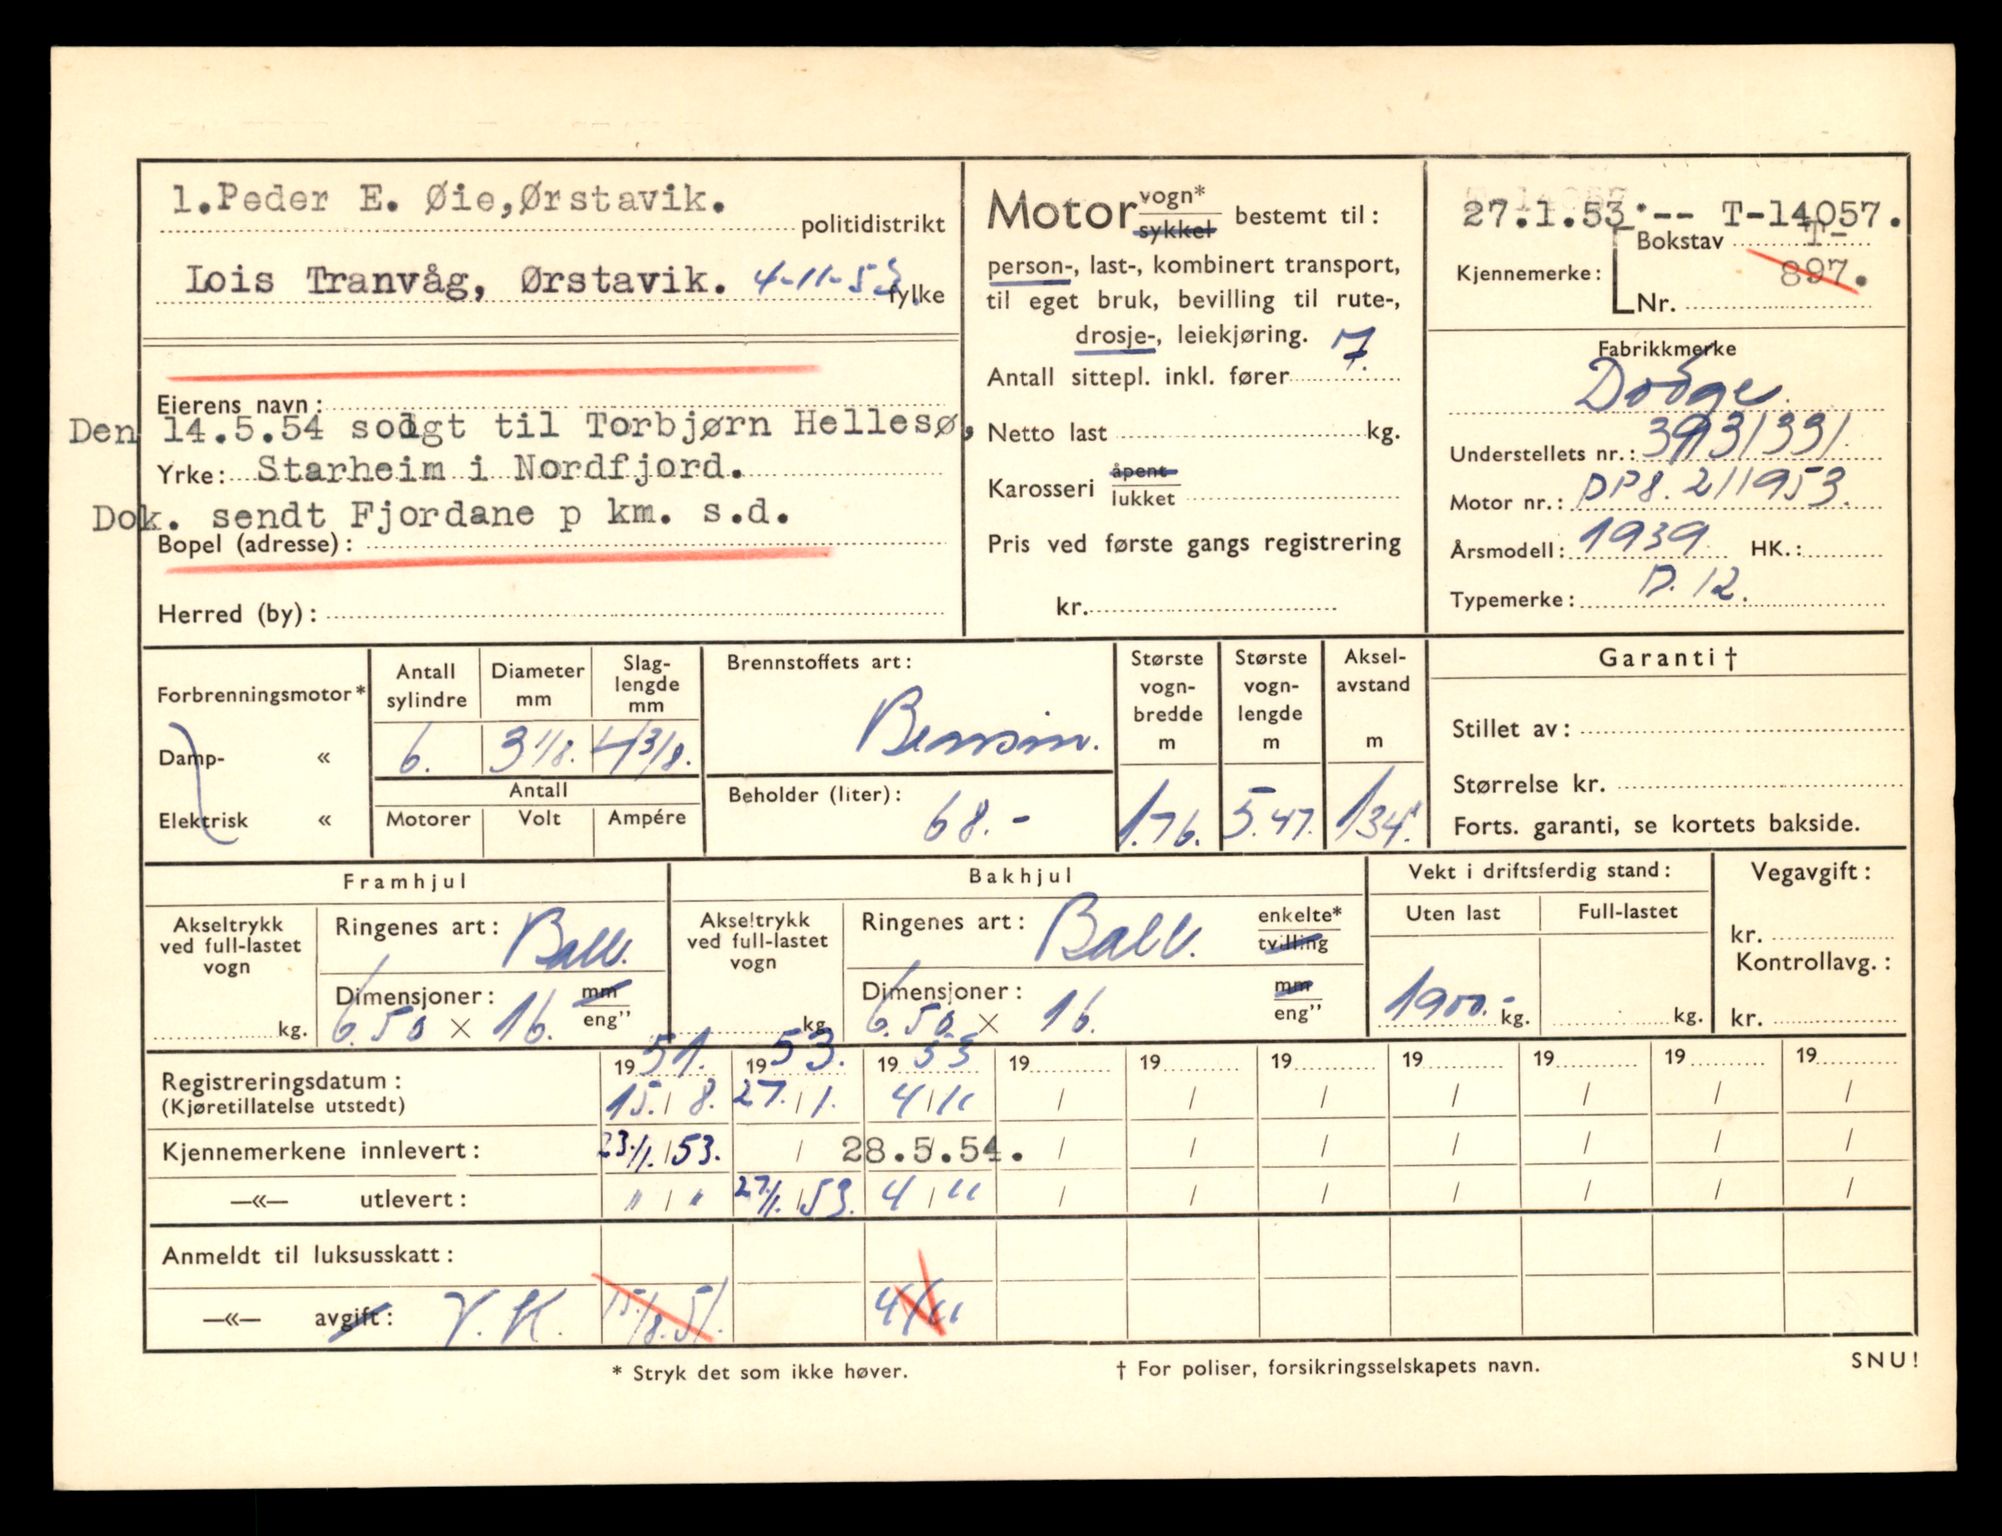 1.Peder E. Øie,Ørstavik.
politidistrikt
Lois Tranvåg, Ørstavik. 4-11-53.
fylke
Eierens navn:
Den 14.5.54 solgt til Torbjørn Hellesø,
Yrke: Starheim i Nordfjord.
Dok. sendt Fjordane p km. s.d.
Bopel (adresse):
Herred (by):
Motor vogn* sykkel bestemt til:
person-, last-, kombinert transport,
til eget bruk, bevilling til rute-,
drosje-, leiekjøring.
Antall sittepl. inkl. fører 7.
Netto last kg.
Karosseri åpent lukket
Pris ved første gangs registrering
kr.
27.1.53.-- T-14057.
Kjennemerke: Bokstav T-
Nr. 897.
Fabrikkmerke
Dodge.
Understellets nr.: 3913133/.
Motor nr.: DP8.211953.
Årsmodell: 1939 HK.:
Typemerke: D.12.
Forbrenningsmotor*
Damp- «
Elektrisk «
Antall sylindre
6.
Diameter mm
3 1/8.
Slag-lengde mm
4 3/8.
Antall
Motorer Volt Ampére
Brennstoffets art:
Bensin.
Beholder (liter):
68.-
Største vogn-bredde m
1.76.
Største vogn-lengde m
5.47.
Aksel-avstand m
134".
Garanti †
Stillet av:
Størrelse kr.
Forts. garanti, se kortets bakside.
Framhjul
Akseltrykk ved full-lastet vogn
kg.
Ringenes art: Ball.
Dimensjoner: mm eng”
6.50 × 16.
Bakhjul
Akseltrykk ved full-lastet vogn
kg.
Ringenes art: Ball. enkelte* tvilling
Dimensjoner: mm eng”
6.50 × 16.
Vekt i driftsferdig stand:
Uten last Full-lastet
1900.- kg. kg.
Vegavgift:
kr.
Kontrollavg.:
kr.
1951. 1953. 1953 19 19 19 19 19 19 19
Registreringsdatum: 15./8. 27./1. 4/11 / / / / / / /
(Kjøretillatelse utstedt)
Kjennemerkene innlevert: 23./1. 53. / 28.5.54. / / / / / / /
—«— utlevert: " / " 27/1. 53. 4/11 / / / / / / /
Anmeldt til luksusskatt:
—«— avgift: V.K. 15./8.51. 4/11
* Stryk det som ikke høver.
† For poliser, forsikringsselskapets navn.
SNU!